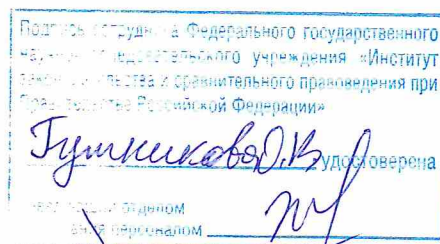 Подпись сотрудника Федерального государственного
научно-исследовательского учреждения «Институт
законодательства и сравнительного правоведения при
Правительстве Российской Федерации»
О.В. удостоверена
отделом
персоналом